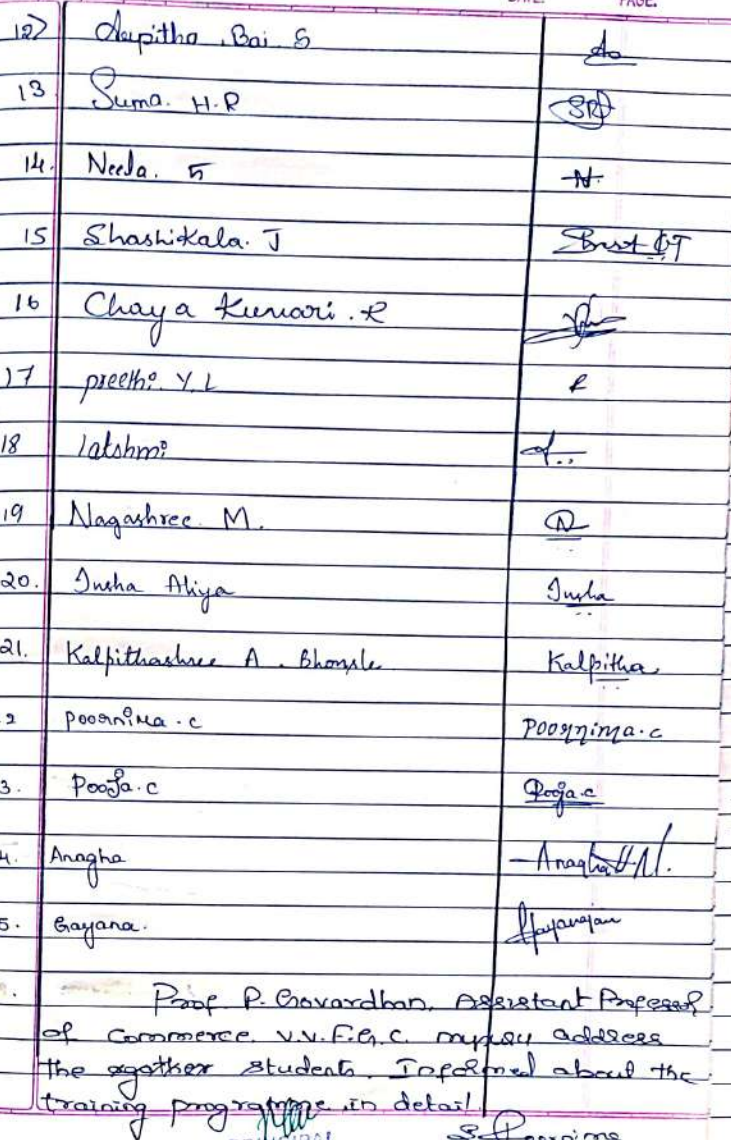 PAGE.
12) Arpitha Bai S
13 Suma. H.R SR
14. Neela. S N.
15 Shashikala. J
16 Chaya Kumari . R
17 preethi Y. L P
18 lakshmi L...
19 Nagashree M. N
20. Insha Aliya Insha
21. Kalpithashree A . Bhonsle Kalpitha
2 poornima . c poornima . c
3. Pooja . c Pooja . c
4. Anagha Anagha H N.
5. Gayana.
Prof P. Govardhan, Assistant Professor
of Commerce V.V.F.G.C. address
the students. Informed about the
training programme in detail